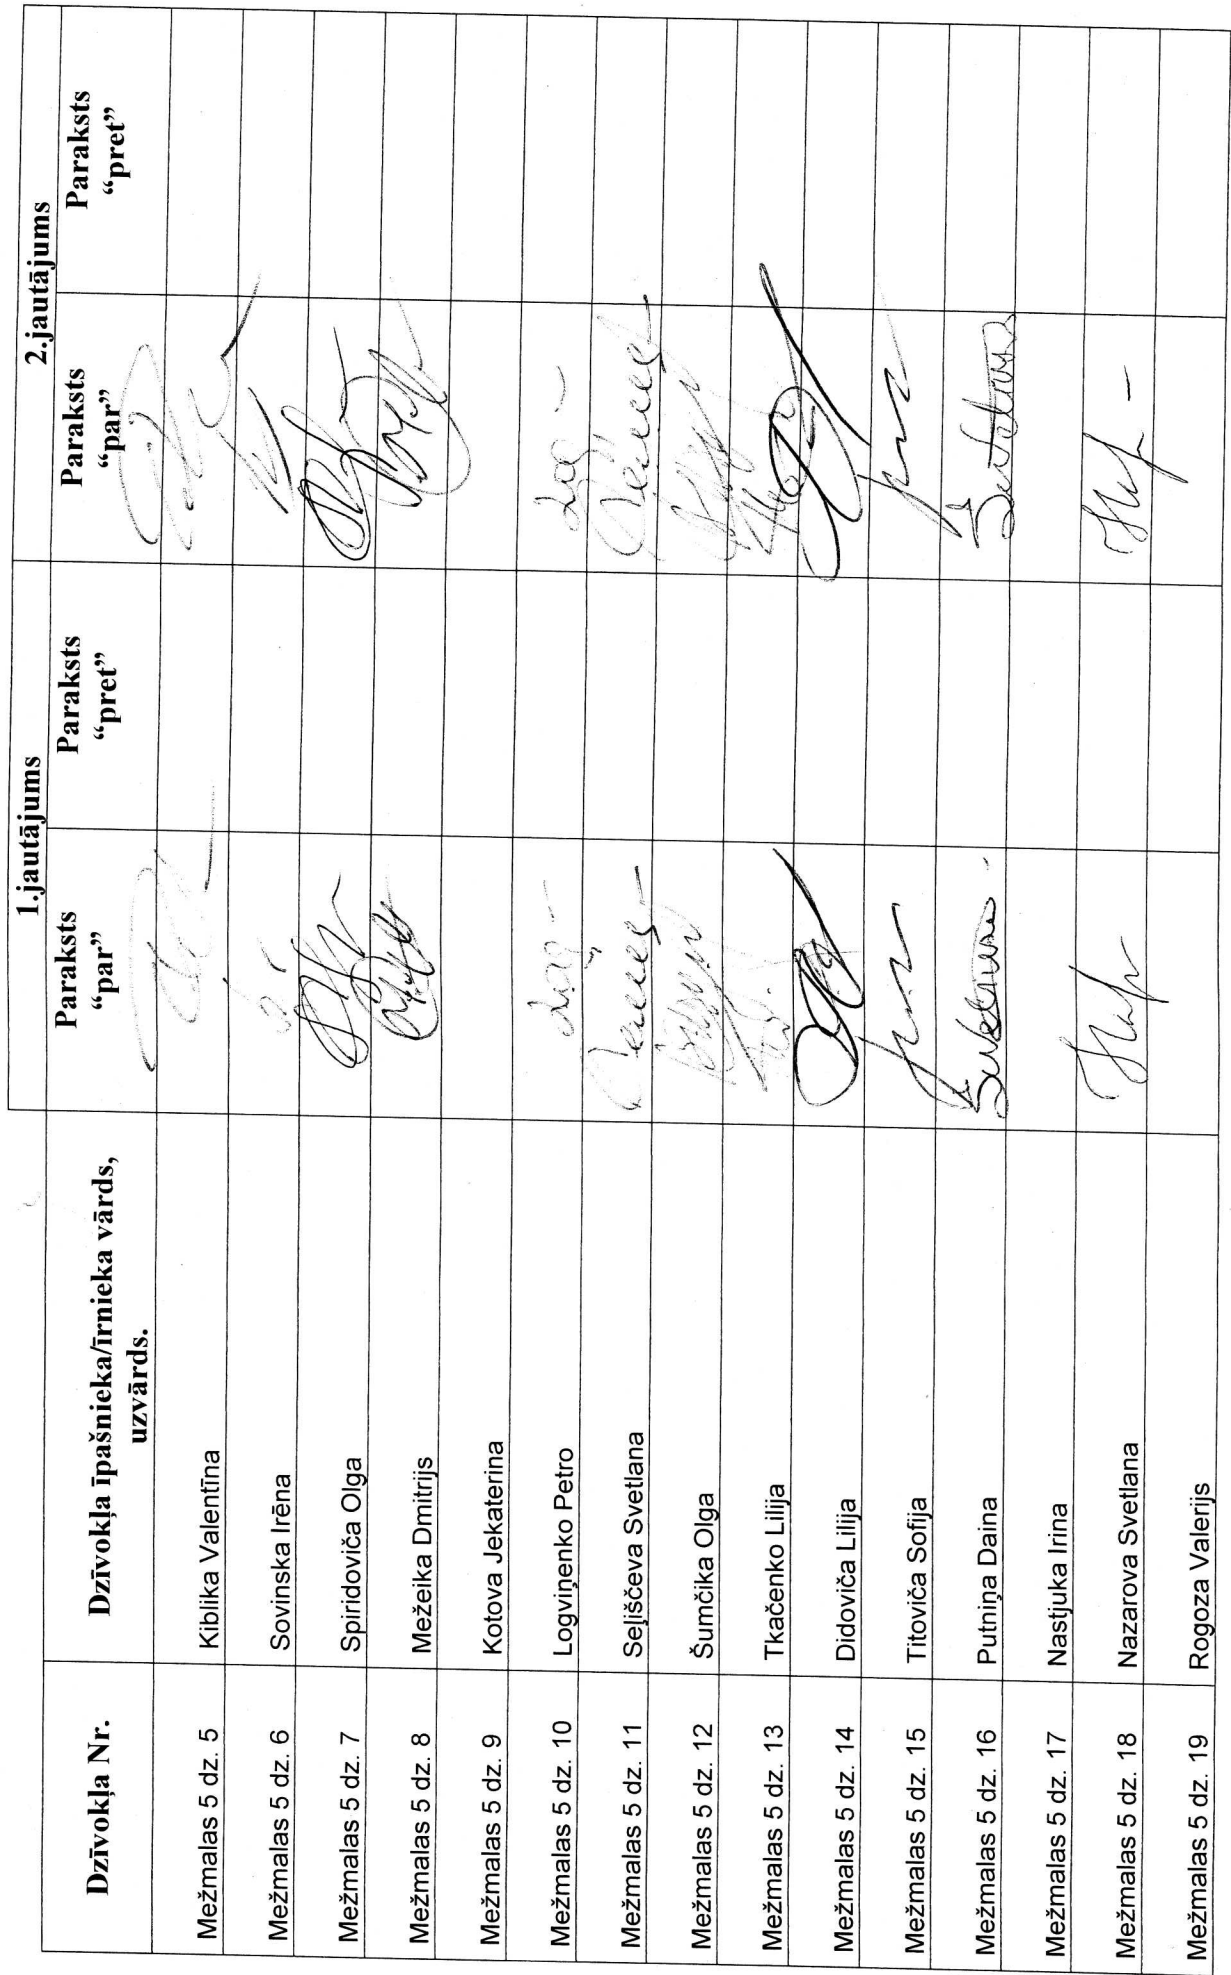 1.jautājums 2.jautājums
Dzīvokļa Nr. Dzīvokļa īpašnieka/īrnieka vārds, Paraksts Paraksts Paraksts Paraksts
uzvārds. “par” “pret” “par” “pret”
Mežmalas 5 dz. 5 Kiblika Valentīna
Mežmalas 5 dz. 6 Sovinska Irēna
Mežmalas 5 dz. 7 Spiridoviča Olga
Mežmalas 5 dz. 8 Mežeika Dmitrijs
Mežmalas 5 dz. 9 Kotova Jekaterina
Mežmalas 5 dz. 10 Logviņenko Petro
Mežmalas 5 dz. 11 Seļiščeva Svetlana
Mežmalas 5 dz. 12 Šumčika Olga
Mežmalas 5 dz. 13 Tkačenko Lilija
Mežmalas 5 dz. 14 Didoviča Lilija
Mežmalas 5 dz. 15 Titoviča Sofija
Mežmalas 5 dz. 16 Putniņa Daina
Mežmalas 5 dz. 17 Nastjuka Irina
Mežmalas 5 dz. 18 Nazarova Svetlana
Mežmalas 5 dz. 19 Rogoza Valerijs